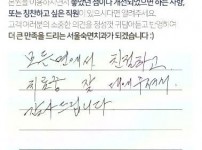 본원을 이용하시면서 좋았던 점이나 개선되었으면 하는 사항,
또는 칭찬하고 싶은 직원이 있으시다면 알려주세요.
고객여러분의 소중한 의견을 적극 귀담아듣고 반영하며
더 큰 만족을 드리는 서울숙면치과가 되겠습니다.
모든 면에서 친절하고
치료끝 잘 대해주셔서
감사드립니다